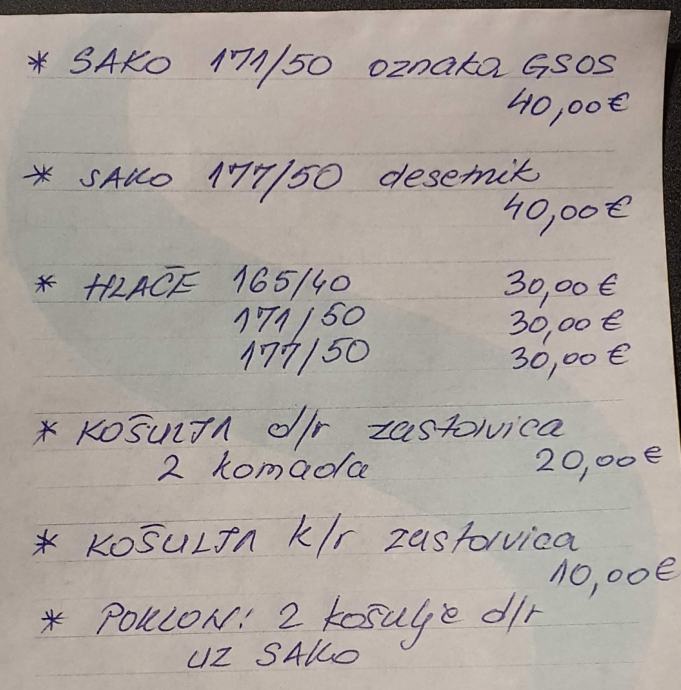 * SAKO 171/50 oznaka GSOS
40,00€
* SAKO 177/50 desetnik
40,00€
* HLAČE 165/40 30,00€
171/50 30,00€
177/50 30,00€
* KOŠULJA d/r zastavica
2 komada 20,00€
* KOŠULJA k/r zastavica
10,00€
* POKLON: 2 košulje d/r
UZ SAKO